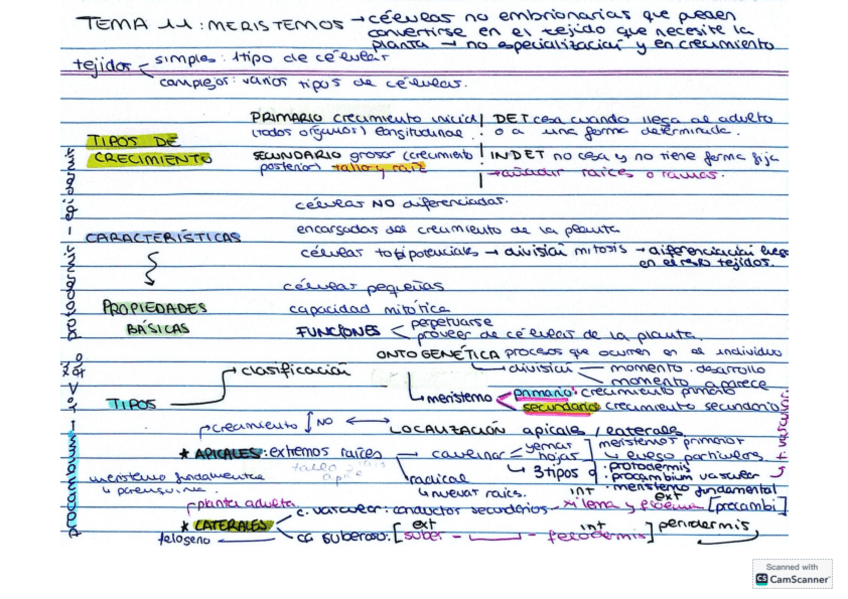 TEMA 11: MERISTEMOS → células no embrionarias que pueden
convertirse en el tejido que necesite la
planta → no especialización y en crecimiento
tejidos simples: 1 tipo de celular
complejos: varios tipos de células.
PRIMARIO crecimiento inicial DET cesa cuando llega al adulto
(todos organos) longitudinal. o a una forma determinada.
TIPOS DE
CRECIMIENTO
SECUNDARIO grosor (crecimiento INDET no cesa y no tiene forma fija
posterior) tallo y raiz → añadir raices o ramas.
células NO diferenciadas.
CARACTERÍSTICAS
encargadas del crecimiento de la planta
células totipotenciales → división mitosis → diferenciación luego
en el resto tejidos.
células pequeñas
PROPIEDADES
BÁSICAS
capacidad mitótica
FUNCIONES perpetuarse
proveer de células de la planta.
ONTOGENÉTICA procesos que ocurren en el individuo
TIPOS → clasificación
división momento desarrollo
momento aparece
meristemo primario: crecimiento primario
secundario: crecimiento secundario
crecimiento NO
LOCALIZACIÓN apicales / laterales
* APICALES: extremos raíces
caulinar yemas
hojas
meristemos primarios
↳ luego particulares
↳ 3 tipos
· protodermis
· procambium vascular
· meristemo fundamental
radical
↳ nuevas raices.
meristemo fundamental
↳ parenquima
planta adulta
* LATERALES
c. vascular: conductos secundarios - int xilema y ext floema [procambi]
ca suberoso: [ext suber - int felodermis] peridermis
felogeno
Scanned with
CS CamScanner